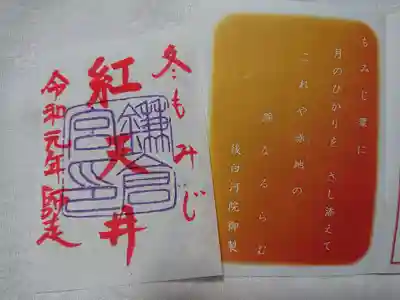 もみじ葉に
月のひかりを さし添えて
これや赤地の
錦なるらむ
後白河院御製
冬もみじ
紅天井
令和元年師走
鎌倉
宮印